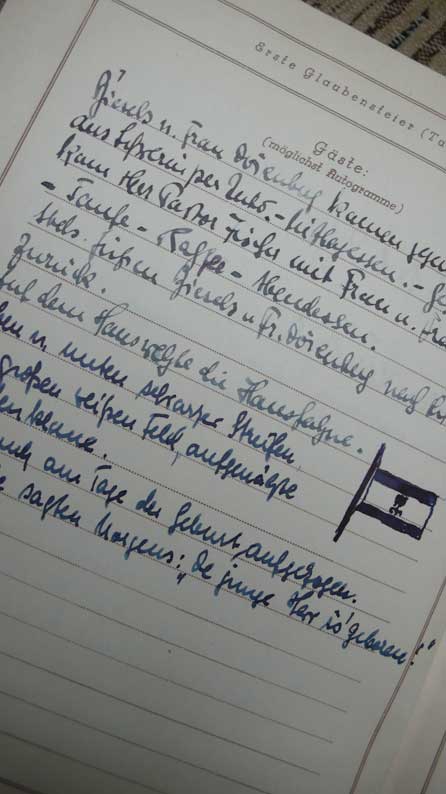 Erste Glaubensfeier (Ta
Gäste:
(möglichst Autogramme)
u. Frau Dörenberg kamen gegen
aus Schwerin per Auto. - Mittagessen. -
kam Herr Pastor Fischer mit Frau u.
- Taufe - Kaffee - Abendessen.
fuhren u. Fr. Dörenberg nach
zurück.
Auf dem Haus wehte die Hausfahne.
u. unten schwarzer Streifen,
großen weißen Feld, aufgenähte
am Tage der Geburt aufgezogen.
sagten Morgens: „De junge Herr is' geboren!"